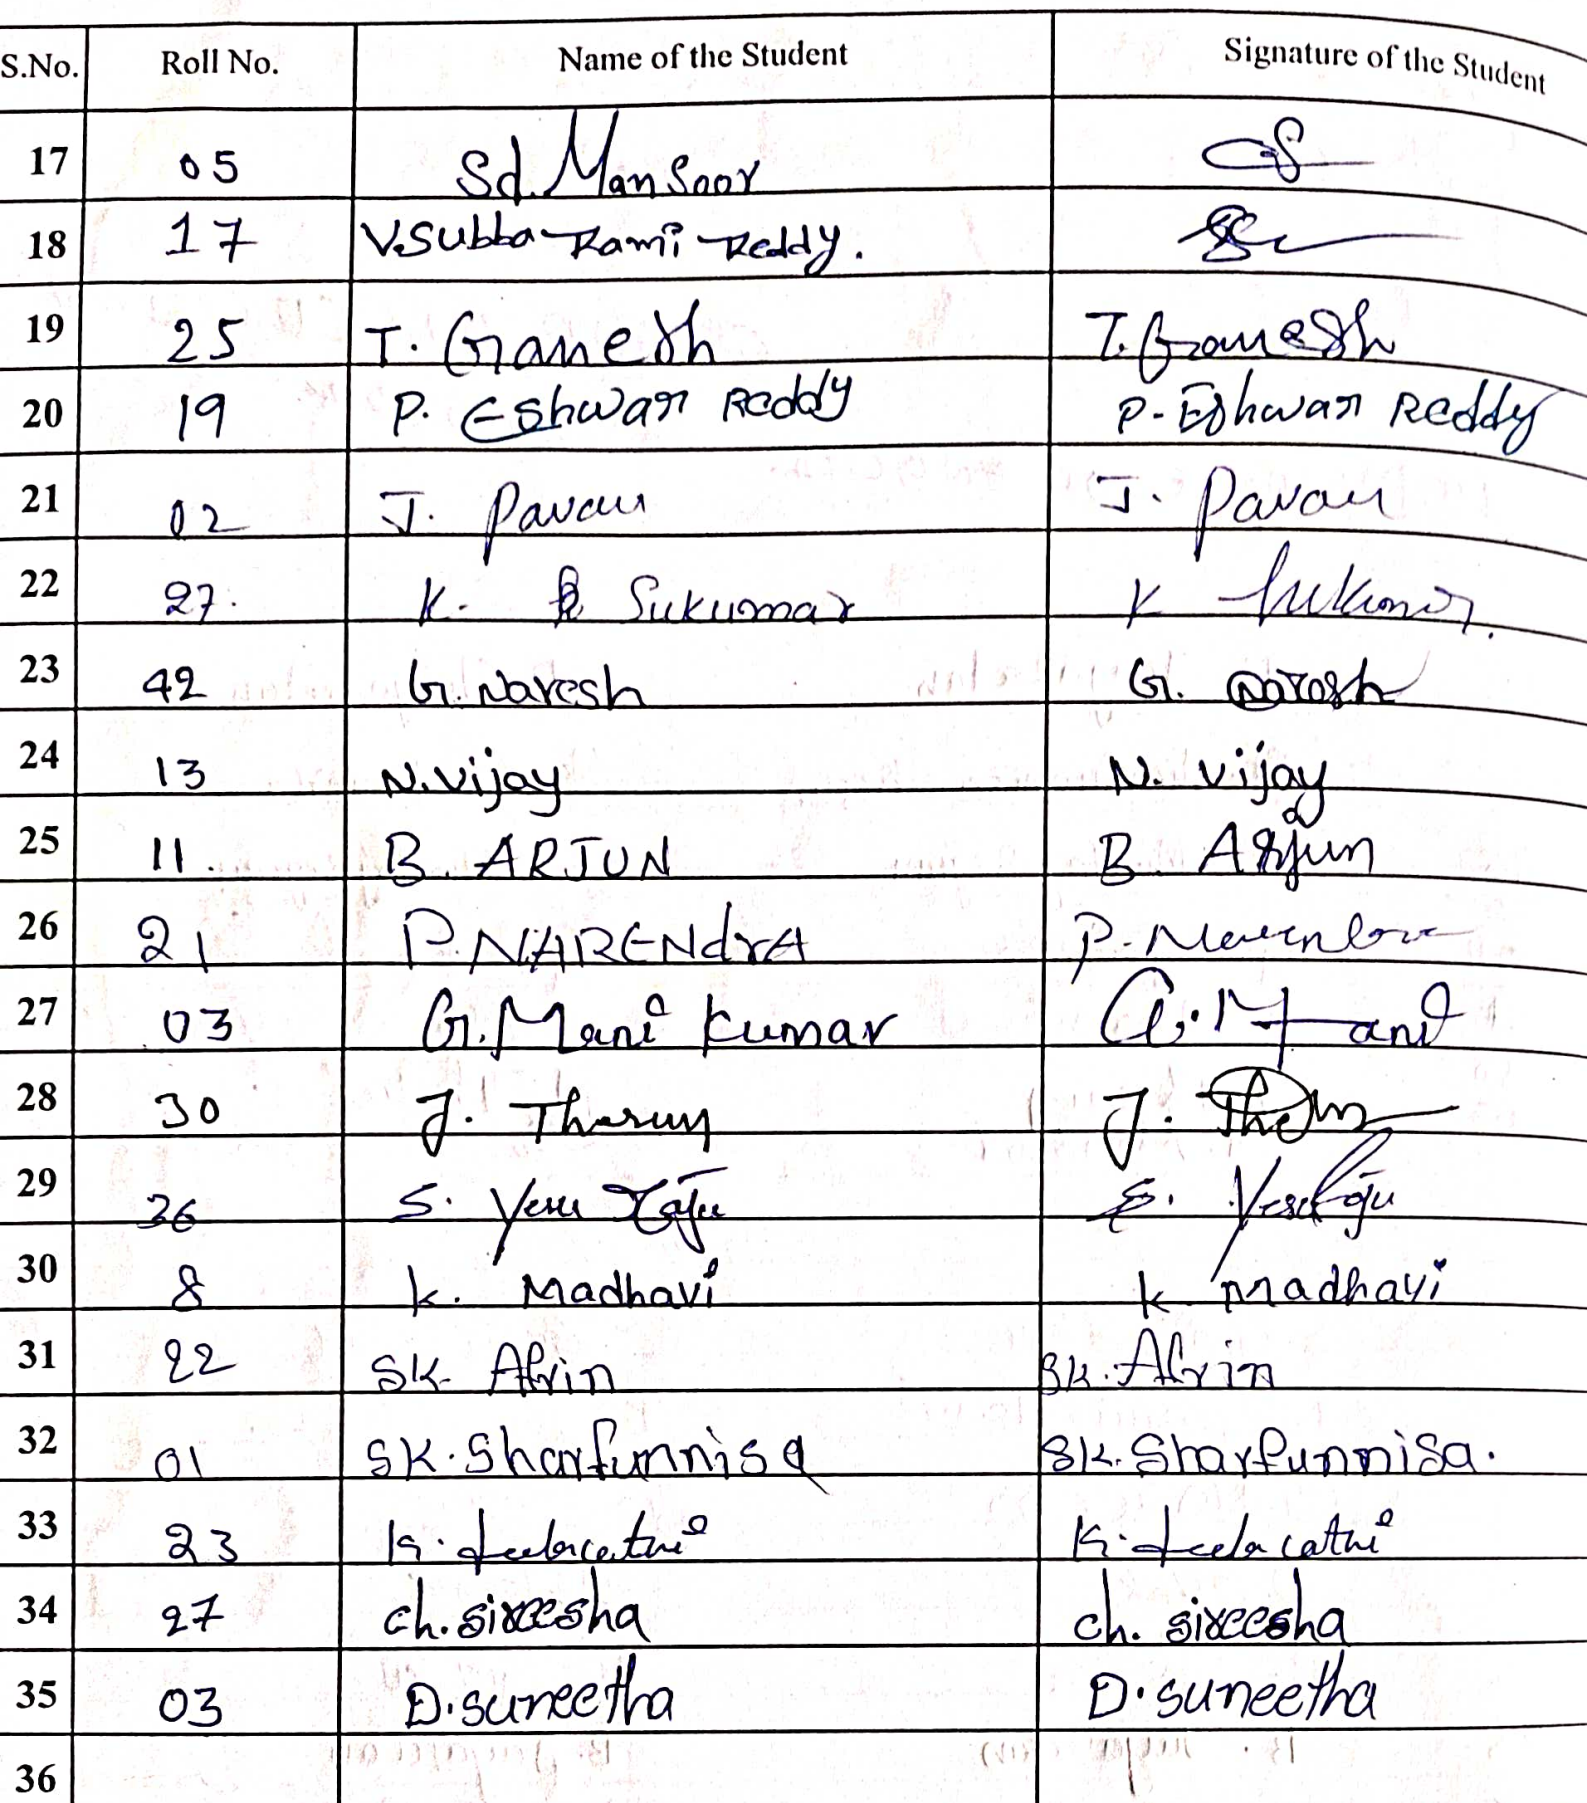 S.No. Roll No. Name of the Student Signature of the Student
17 05 Sd. Mansoor
18 17 V.Subba Rami Reddy.
19 25 T. Ganesh T. Ganesh
20 19 P. Eshwar Reddy P. Eshwar Reddy
21 02 J. Pavan J. Pavan
22 27. K. Sukumar K Sukumar.
23 42 G. Naresh G. Naresh
24 13 N. Vijay N. Vijay
25 11. B. ARJUN B. Arjun
26 21 P. NARENdrA P. Narendra
27 03 G. Mani kumar G. Mani
28 30 J. Tharun J.
29 36 S. Yesu Raju S. Yesu Raju
30 8 k. Madhavi k. madhavi
31 22 SK. Afrin SK. Afrin
32 01 SK. Sharfunnisa SK. Sharfunnisa.
33 23 K. Leelacathi K. Leelacathi
34 27 ch. sireesha ch. sireesha
35 03 D. suneetha D. suneetha
36